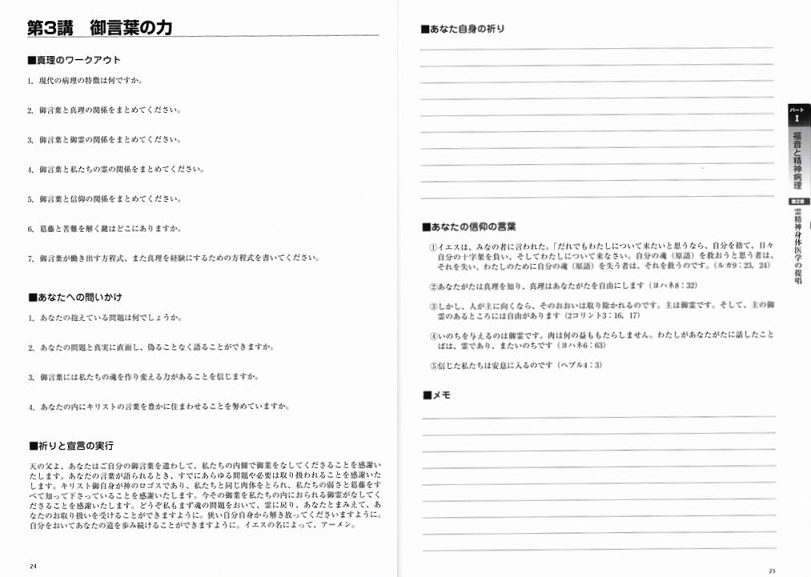 第3講 御言葉の力
■真理のワークアウト
1. 現代の病理の特徴は何ですか。
2. 御言葉と真理の関係をまとめてください。
3. 御言葉と御霊の関係をまとめてください。
4. 御言葉と私たちの霊の関係をまとめてください。
5. 御言葉と信仰の関係をまとめてください。
6. 葛藤と苦難を解く鍵はどこにありますか。
7. 御言葉が働き出す方程式、また真理を経験にするための方程式を書いてください。
■あなたへの問いかけ
1. あなたの抱えている問題は何でしょうか。
2. あなたの問題と真実に直面し、偽ることなく語ることができますか。
3. 御言葉には私たちの魂を作り変える力があることを信じますか。
4. あなたの内にキリストの言葉を豊かに住まわせることを努めていますか。
■祈りと宣言の実行
天の父よ、あなたはご自分の御言葉を遣わして、私たちの内側で御業をなしてくださることを感謝い
たします。あなたの言葉が語られるとき、すでにあらゆる問題や必要は取り扱われることを感謝いた
します。キリスト御自身が神のロゴスであり、私たちと同じ肉体をとられ、私たちの弱さと葛藤をす
べて知って下さっていることを感謝いたします。今その御業を私たちの内におられる御霊がなしてく
ださることを感謝いたします。どうぞ私もまず魂の問題をおいて、霊に戻り、あなたとまみえて、あ
なたのお取り扱いを受けることができますように。狭い自分自身から解き放ってくださいますように。
自分をおいてあなたの道を歩み続けることができますように。イエスの名によって、アーメン。
24
■あなた自身の祈り
■あなたの信仰の言葉
①イエスは、みなの者に言われた。「だれでもわたしについて来たいと思うなら、自分を捨て、日々
自分の十字架を負い、そしてわたしについて来なさい。自分の魂（原語）を救おうと思う者は、
それを失い、わたしのために自分の魂（原語）を失う者は、それを救うのです。（ルカ9：23, 24）
②あなたがたは真理を知り、真理はあなたがたを自由にします（ヨハネ8：32）
③しかし、人が主に向くなら、そのおおいは取り除かれるのです。主は御霊です。そして、主の御
霊のあるところには自由があります（2コリント3：16, 17）
④いのちを与えるのは御霊です。肉は何の益ももたらしません。わたしがあなたがたに話したこと
ばは、霊であり、またいのちです（ヨハネ6：63）
⑤信じた私たちは安息に入るのです（ヘブル4：3）
■メモ
25
パート
I
福音と精神病理
霊精神身体医学の提唱